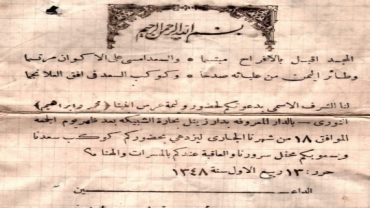 بسم الله الرحمن الرحيم
المجد اقبل بالافراح مبتسما والسعد امسى على الاكوان مرتسما
وطائر اليمن من عليائه صدحا وكوكب السعد فى افق العلا نجما
لنا الشرف الاسمى بدعوتكم لحضور وليمة عرس (محمد وابراهيم)
بالدار المعروفة بحارة الشبكة بعد ظهر يوم الجمعة
الموافق ١٨ من شهرنا الجارى ليزدهى بحضوركم كوكب سعدنا
محفل سرورنا والعاقبة عندكم بالمسرات والهنا
حرر: ١٣ ربيع الاول سنة ١٣٤٨
الداعـــــين